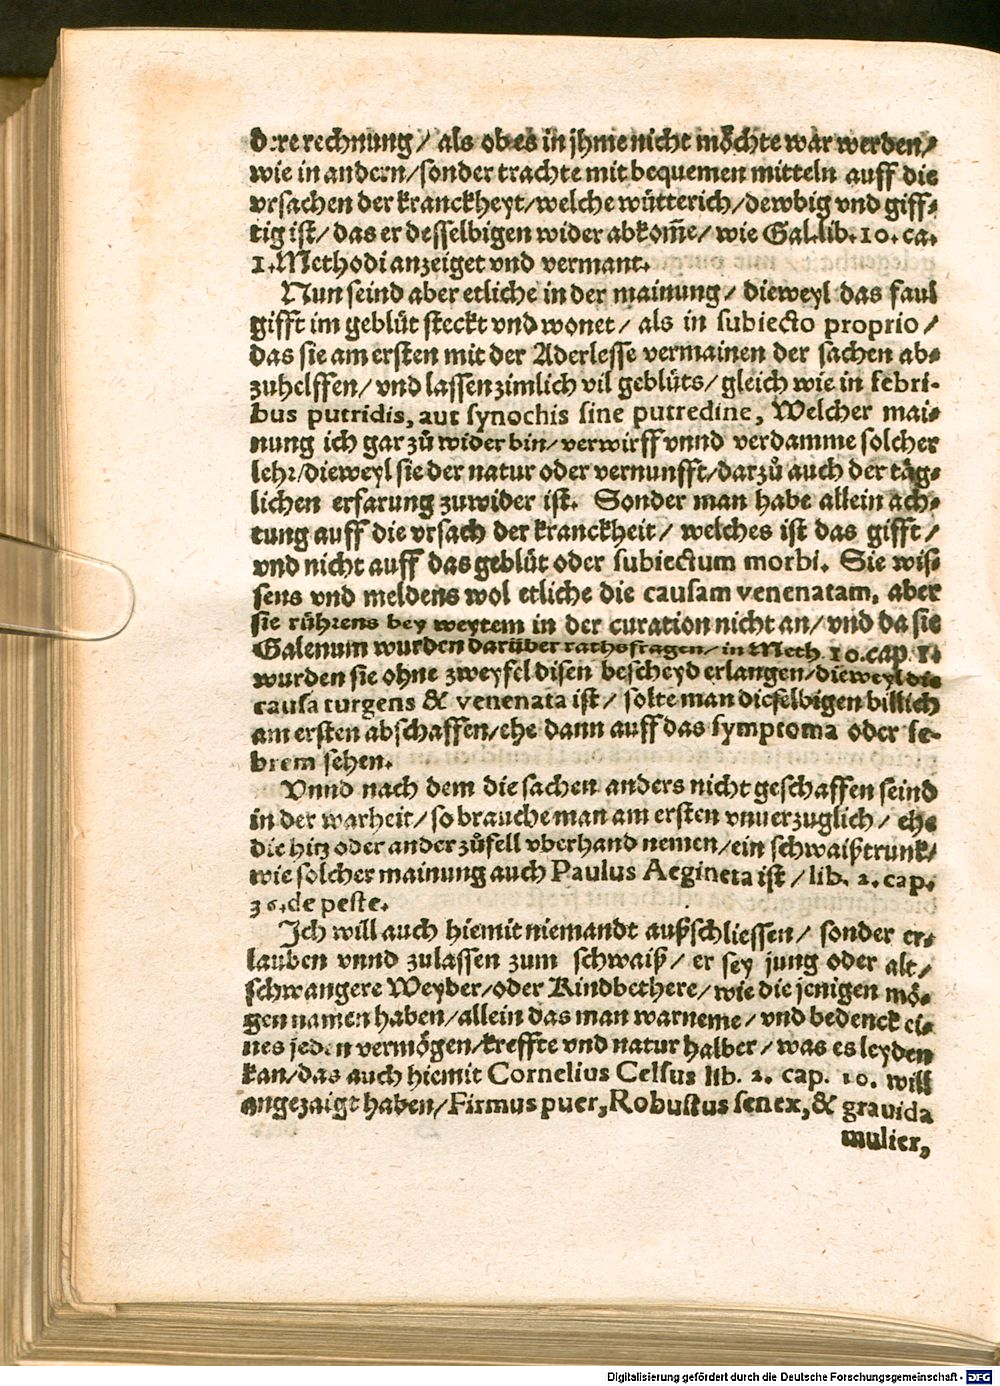 dere rechnung / als ob es in jhme nicht möchte war werden/
wie in andern/sonder trachte mit bequemen mitteln auff die
vrsachen der kranckheyt/welche wütterich/dewbig vnd giff⸗
tig ist/ das er desselbigen wider abkom̃e/ wie Gal.lib. 10. ca.
1. Methodi anzeiget vnd vermant.
Nun seind aber etliche in der mainung / dieweyl das faul
gifft im geblüt steckt vnd wonet / als in subiecto proprio /
das sie am ersten mit der Aderlesse vermainen der sachen ab⸗
zuhelffen/ vnd lassen zimlich vil geblüts/ gleich wie in febri-
bus putridis, aut synochis sine putredine, Welcher mai⸗
nung ich gar zů wider bin/ verwirff vnnd verdamme solcher
lehr/dieweyl sie der natur oder vernunfft/darzů auch der täg⸗
lichen erfarung zuwider ist. Sonder man habe allein ach⸗
tung auff die vrsach der kranckheit / welches ist das gifft /
vnd nicht auff das geblüt oder subiectum morbi. Sie wis⸗
sens vnd meldens wol etliche die causam venenatam, aber
sie rührens bey weytem in der curation nicht an/ vnd da sie
Galenum wurden darüber rathsfragen/ in Meth. 10. cap. 1.
wurden sie ohne zweyfel disen bescheyd erlangen/dieweyl die
causa turgens & venenata ist / solte man dieselbigen billich
am ersten abschaffen/ehe dann auff das symptoma oder fe-
brem sehen.
Vnnd nach dem die sachen anders nicht geschaffen seind
in der warheit/ so brauche man am ersten vnuerzuglich / ehe
die hitz oder ander zůfell vberhand nemen/ein schwaißtrunk/
wie solcher mainung auch Paulus Aegineta ist / lib. 2. cap.
36. de peste.
Ich will auch hiemit niemandt außschliessen / sonder er⸗
lauben vnnd zulassen zum schwaiß / er sey jung oder alt /
schwangere Weyber/oder Kindbethere/ wie die jenigen mö⸗
gen namen haben/allein das man warneme / vnd bedenck ei⸗
nes jeden vermögen/kreffte vnd natur halber / was es leyden
kan/das auch hiemit Cornelius Celsus lib. 2. cap. 10. will
angezaigt haben/ Firmus puer, Robustus senex, & grauida
mulier,
Digitalisierung gefördert durch die Deutsche Forschungsgemeinschaft - DFG